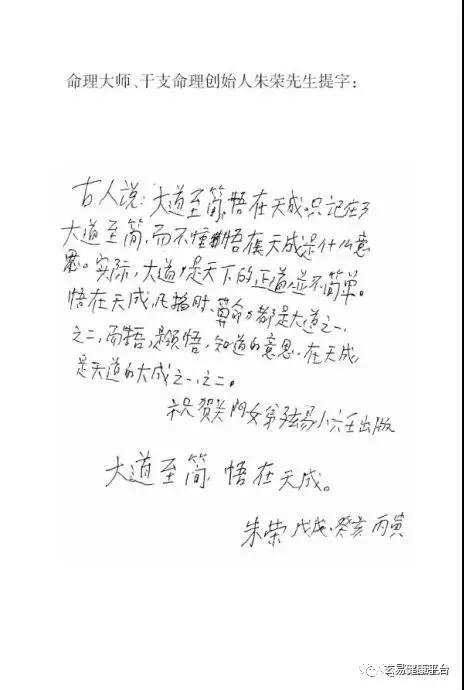 命理大师、干支命理创始人朱荣先生提字：
古人说：大道至简，悟在天成。只记在了
大道至简，而不懂悟在天成是什么意
思。实际，大道，是天下的正道并不简单。
悟在天成，凡择时、算命，都是大道之一、
之二，而悟，是顾悟，知道的意思。在天成，
是天道的大成之一、之二。
祝贺关门女弟弦易小六壬出版
大道至简，悟在天成。
朱荣 戊戌、癸亥 丙寅
玄易健康平台